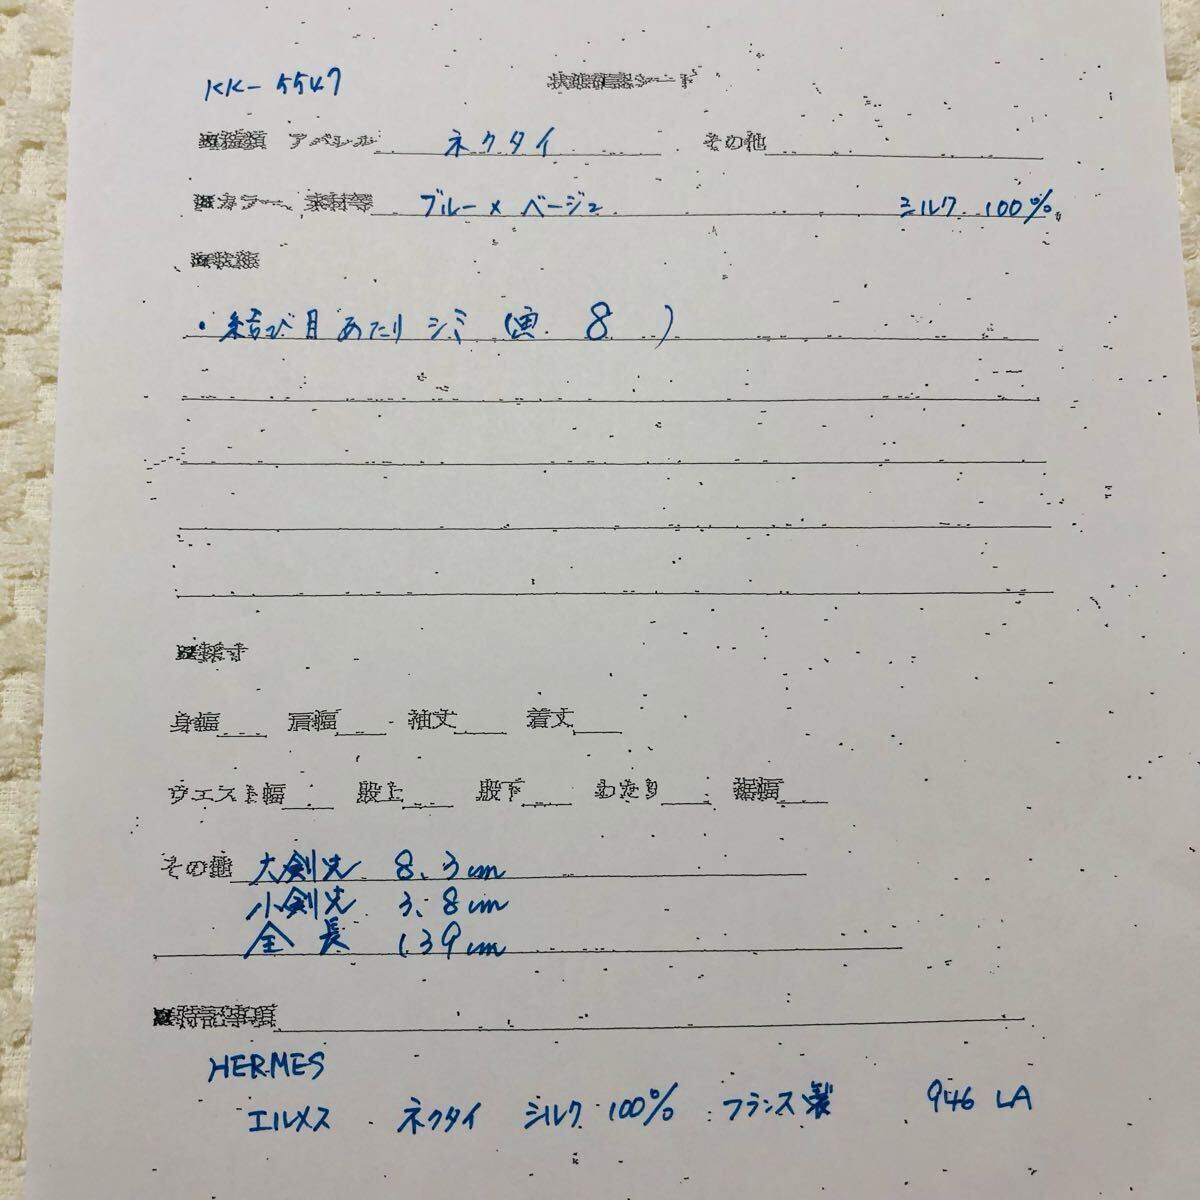 KK-5547
状態確認シート
※種類 アパレル ネクタイ その他
※カラー、素材等 ブルー×ベージュ シルク 100%
※状態
・結び目あたりシミ(画. 8 )
※採寸
身幅 肩幅 袖丈 着丈
ウエスト幅 股上 股下 わたり 裾幅
その他 大剣先 8.3cm
小剣先 3.8cm
全長 139cm
※特記事項
HERMES
エルメス ネクタイ シルク 100% フランス製 946 LA